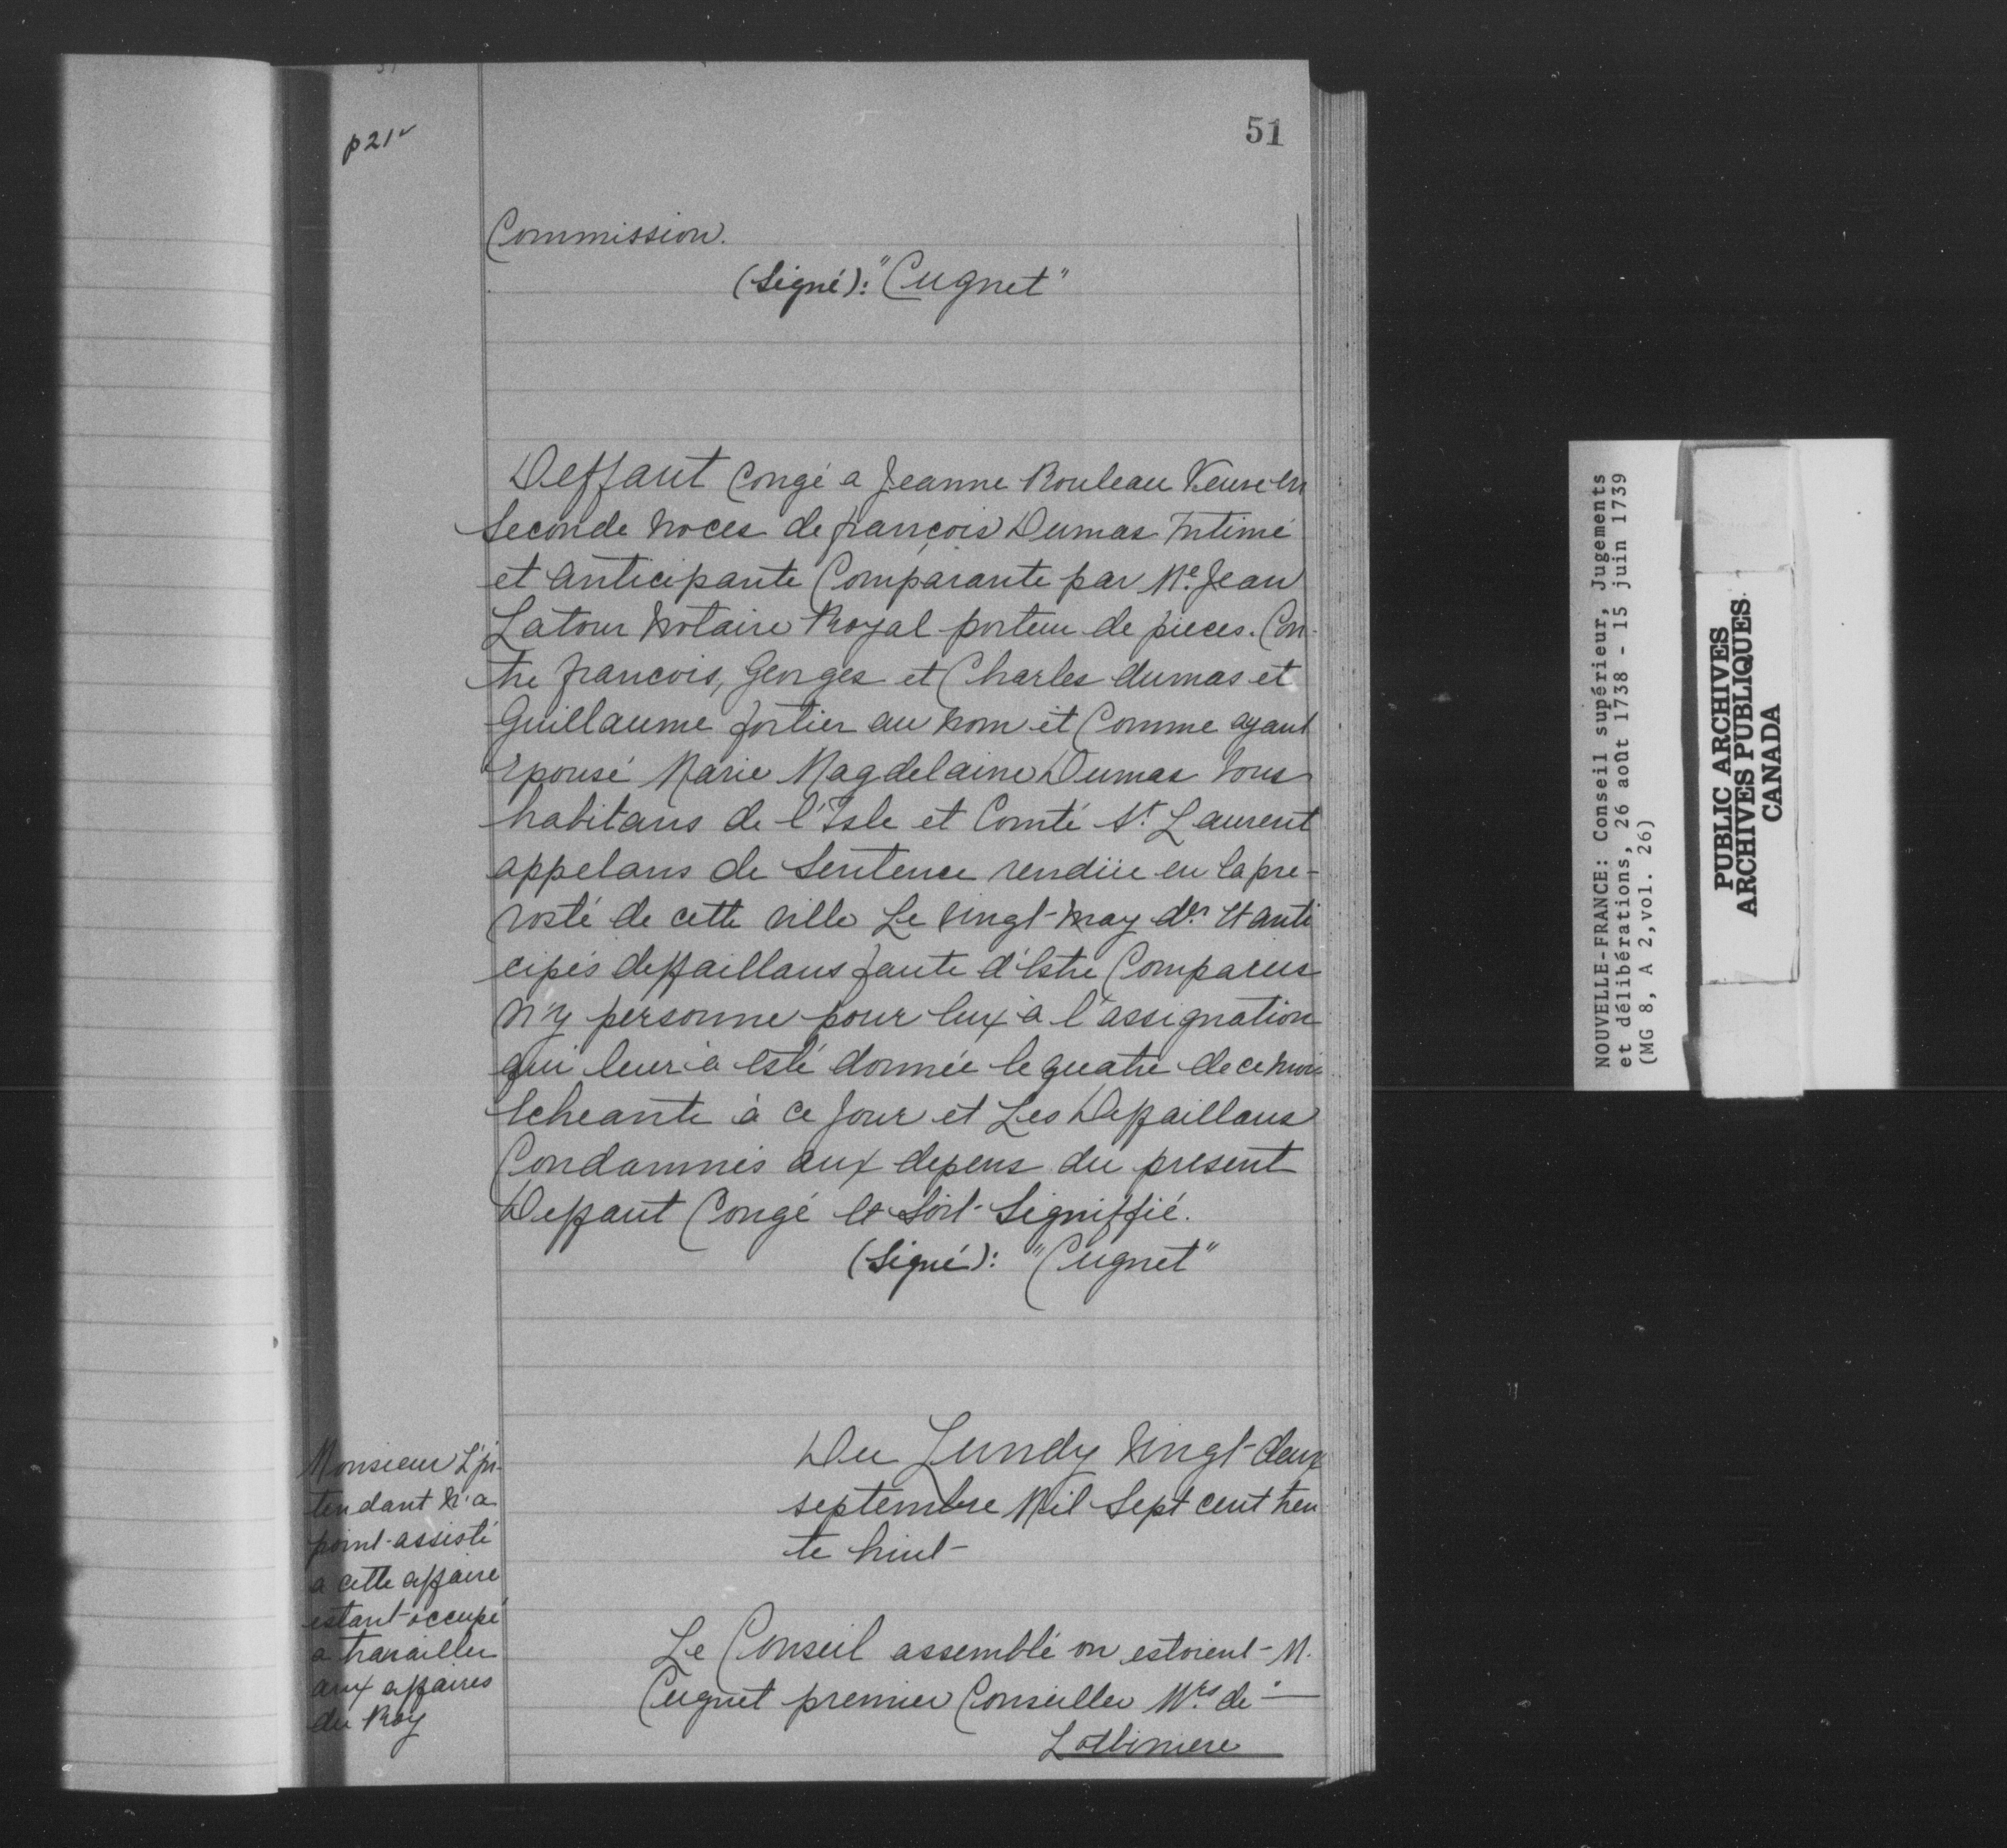 p 21v
51
Commission.
(Signé): "Cugnet"
Deffaut Congé a Jeanne Rouleau Veuve en
Seconde Noces de françois Dumas Intimé
et anticipante Comparante par Me. Jean
Latour Notaire Royal porteur de pieces. Con-
tre francois, Georges et Charles dumas et
Guillaume fortier au nom et Comme ayant
Epousé Marie Magdelaine Dumas tous
habitans de l'Isle et Comté St. Laurent
appelans de Sentence rendüe en la pre-
vosté de cette ville Le vingt-may der. Et anti
cipés deffaillans faute d'Estre Comparus
N'y personne pour Eux à l'assignation
qui leur à Esté donnée le quatre de ce mois
Echeante à ce Jour et Les Deffaillans
Condamnés aux depens du present
Deffaut Congé Et Soit-Signiffié.
(Signé): "Cugnet"
Du Lundy Vingt-deux
septembre Mil Sept cent tren
te huit-
Monsieur L'in-
tendant N'a
point-assisté
a cette affaire
estant-occupé
a travailler
aux affaires
du Roy
Le Conseil assemblé ou estoient-M.
Cugnet premier Conseiller Mrs de
Lotbiniere
NOUVELLE-FRANCE: Conseil supérieur, Jugements
et délibérations, 26 août 1738 - 15 juin 1739
(MG 8, A 2, vol. 26)
PUBLIC ARCHIVES
ARCHIVES PUBLIQUES
CANADA